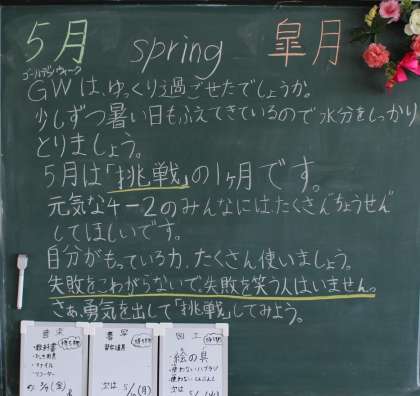 5月 spring 皐月
ゴールデンウィーク
GWは、ゆっくり過ごせたでしょうか。
少しずつ暑い日もふえてきているので水分をしっかり
とりましょう。
5月は「挑戦」の1ヶ月です。
元気な4-2のみんなには、たくさんちょうせん
してほしいです。
自分がもっている力、たくさん使いましょう。
失敗をこわがらないで。失敗を笑う人はいません。
さぁ、勇気を出して「挑戦」してみよう。
音楽
持ち物
・教科書
・ファイル
・リコーダー
書写
習字道具
次は5/
(月)
図工
絵の具
・使わないハブラシ